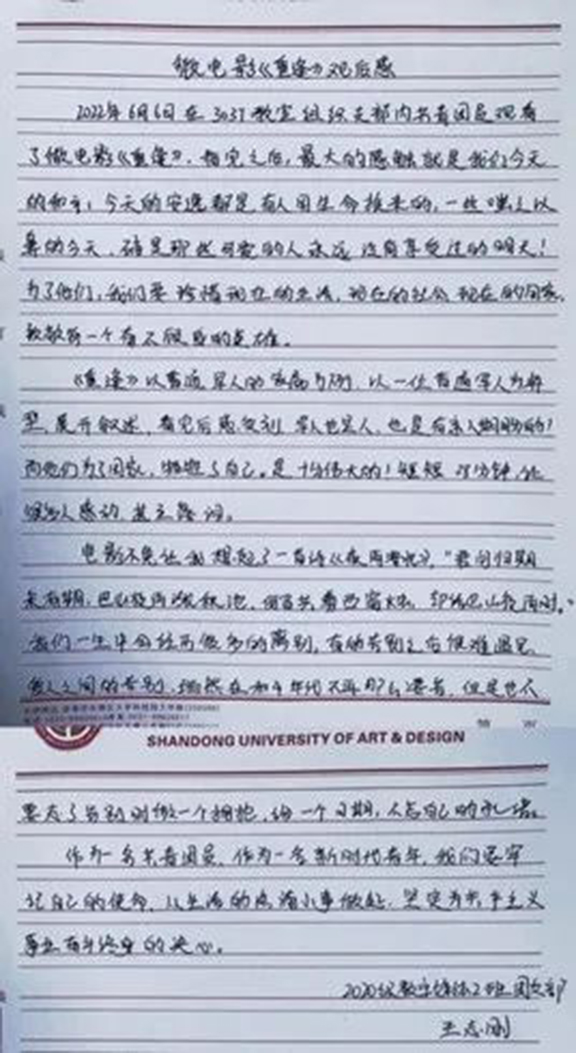 微电影《重逢》观后感
2022年6月6日在3037教室组织支部内共青团员观看
了微电影《重逢》,看完之后,最大的感触就是我们今天
的和平,今天的安逸都是有人用生命换来的,一些嗤之以
鼻的今天,确是那些可爱的人永远没有享受过的明天!
为了他们,我们要珍惜现在的生活,现在的社会,现在的国家,
致敬每一个有不服输的英雄。
《重逢》以普通军人的为例,以一位普通军人为
展开叙述,看完后感受到军人也是人,也是有亲人朋友的!
而他们为了国家,牺牲了自己。是十分伟大的!短短分钟,让
很多人感动,甚至落泪。
电影不免让我想起了一首诗《夜雨寄北》,"君问归期
未有期,巴山夜雨涨秋池,何当共看西窗烛,却话巴山夜雨时。"
我们一生中会经历很多的离别,有的告别之后很难遇见,
人之间的告别,虽然在和平年代不再那么,但是也不
要忘了告别时做一个拥抱,给一个日期,自己的
作为一名共青团员,作为一名新时代青年,我们要牢
记自己的使命,从生活的点滴小事做起,坚定为共产主义
事业奋斗终身的决心。
2020级数字媒体2班团支部
王志刚
SHANDONG UNIVERSITY OF ART & DESIGN